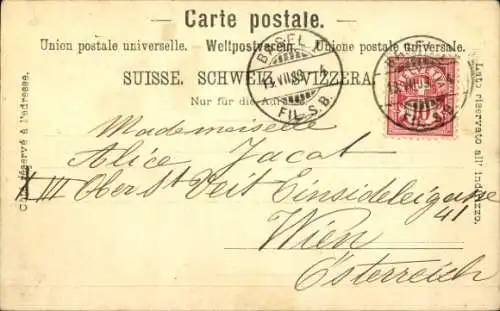 Carte postale.
Union postale universelle. Weltpostverein. Unione postale universale.
SUISSE. SCHWEIZ. SVIZZERA.
Nur für die Adresse.
Côté réservé à l'adresse.
Lato riservato all' indirizzo.
BASEL
FIL. S.B.
HELVETIA
10
FIL. S.B.
Mademoiselle
Alice Jacot
XIII Ober St Veit Einsideleigasse
41
Wien
Österreich